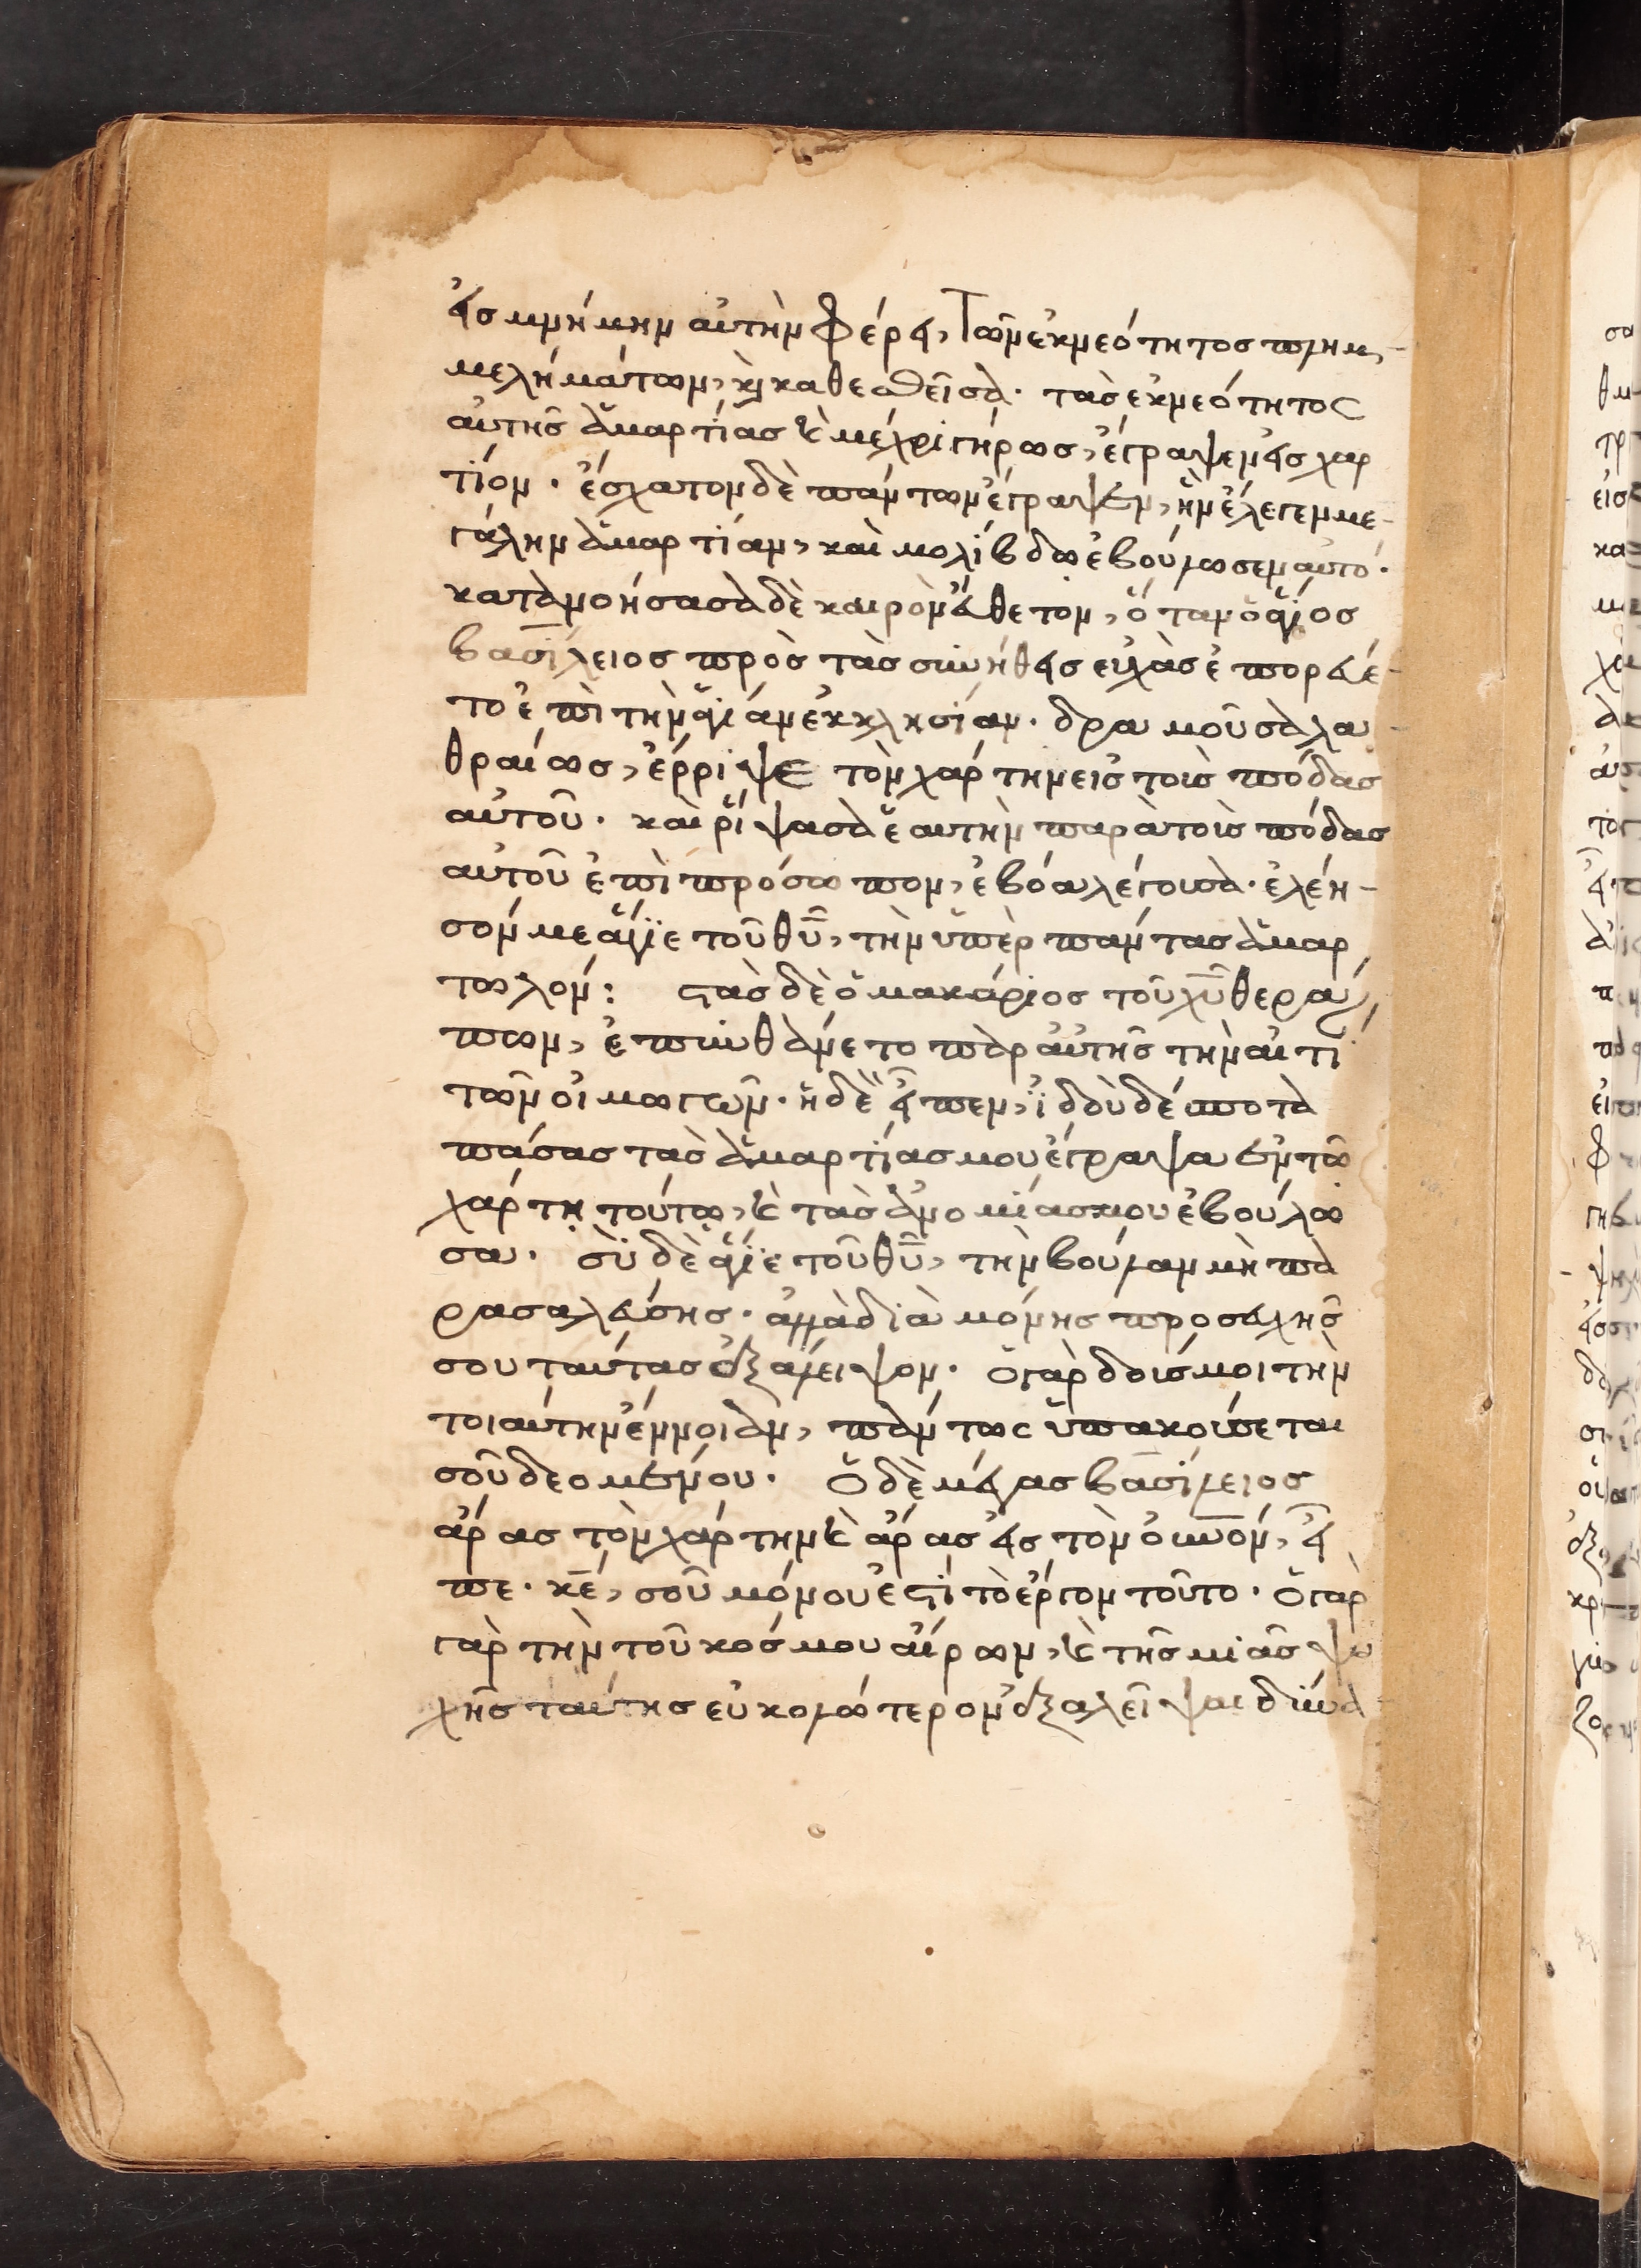 εἰσ μνήμην αὐτὴν φέρει, τῶν ἐκ νεότητοσ πλημ-
μελημάτων, κ(αὶ) καθεσθεῖσα. τὰσ ἐκ νεότητος
αὐτῆσ ἁμαρτίασ κ(αὶ) μέχρι γήρωσ, ἔγραψεν εἰσ χαρ
τίον. ἔσχατον δὲ πάντων ἔγραψεν, ἣν ἔλεγεν με-
γάλην ἁμαρτίαν, καὶ μολίβδω ἐβούλωσεν αὐτό.
κατανοήσασα δὲ καιρὸν εὔθετον, ὅταν ὁ ἅγιοσ
βασίλειοσ πρὸσ τὰσ συνήθεισ εὐχὰσ ἐπορεύε-
το ἐπὶ τὴν ἁγίαν ἐκκλησίαν. δραμοῦσα λα-
θραίωσ, ἔρριψε τὸν χάρτην εἰσ τοὺσ πόδασ
αὐτοῦ. καὶ ῥίψασα ἑαυτὴν παρὰ τοὺσ πόδασ
αὐτοῦ ἐπὶ πρόσωπον, ἐβόα λέγουσα. ἐλέη-
σόν με ἅγιε τοῦ θῦ, τὴν ὑπὲρ πάντασ ἁμαρ
τωλόν: στὰσ δὲ ὁ μακάριοσ τοῦ χῦ θερά
πων, ἐπυνθάνετο παρ αὐτῆσ τὴν αἰτί
τῶν οἰμωγῶν. ἡ δὲ εἶπεν, ἰδοὺ δέσποτα
πάσασ τὰσ ἁμαρτίασ μου ἔγραψα ἐν τῶ
χάρτη τούτω, κ(αὶ) τὰσ ἀνομίασ μου ἐβούλω
σα. σὺ δὲ ἅγιε τοῦ θῦ, τὴν βούλαν μὴ πα
ρασαλεύσησ. ἀλλὰ διὰ μόνησ προσευχῆσ
σου ταύτασ ἐξάλειψον. ὁ γὰρ δοὺσ μοι τὴν
τοιαύτην ἔννοιαν, πάντως ὑπακούσεται
σοῦ δεομένου. ὁ δὲ μέγασ βασίλειοσ
ἄρασ τὸν χάρτην κ(αὶ) ἄρασ εἰσ τὸν οὐνον, εἶ
πε. κε, σοῦ μόνου ἐστί τὸ ἔργον τοῦτο. ὁ γὰρ
γὰρ τὴν τοῦ κόσμου αἴρων, κ(αὶ) τῆσ μιᾶσ ψυ
χῆσ ταύτησ εὐκολώτερον ἐξαλεῖψαι δύνα-